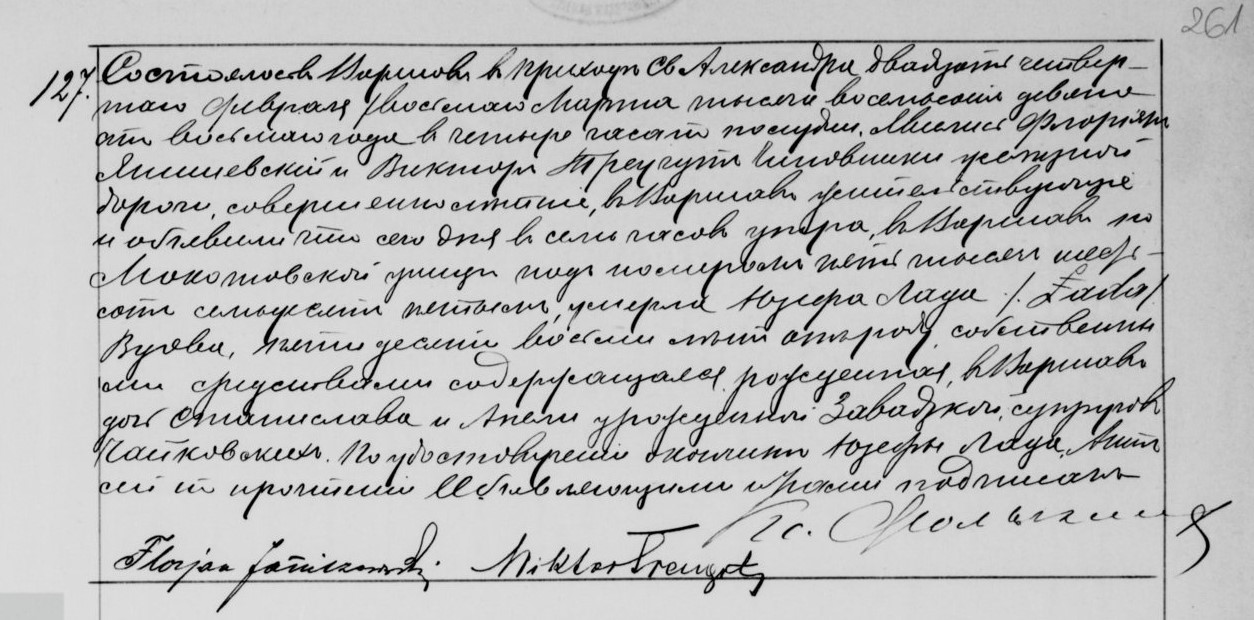 261
127. Состоялось въ Варшавѣ въ приходѣ Св Александра двадцать четвер-
таго Февраля /восьмаго Марта тысяча восемьсотъ девяно
сто восьмаго года въ четыре часа по полудни. Явились Флоріянъ
и Викторъ Треугуттъ Чиновники желѣзной
дороги, совершеннолѣтніе, въ Варшавѣ жительствующіе
и объявили что сего дня въ семь часовъ утра, въ Варшавѣ по
Мокотовской улицѣ подъ номеромъ пять тысячъ шесть-
сотъ семьдесятъ пятымъ, умерла Юзефа Лада /Łada/
Вдова, пятидесяти восьми лѣтъ отъ роду, собственны
ми средствами содержащаяся, рожденная въ Варшавѣ
дочь Станислава и Анели урожденной Завадзкой, супруговъ
Чайковскихъ. По удостовѣреніи о кончинѣ Юзефы Лада, Актъ
сей по прочтеніи Объявляющими и Нами подписанъ
Кс.
Florjan Wiktor Treugutt